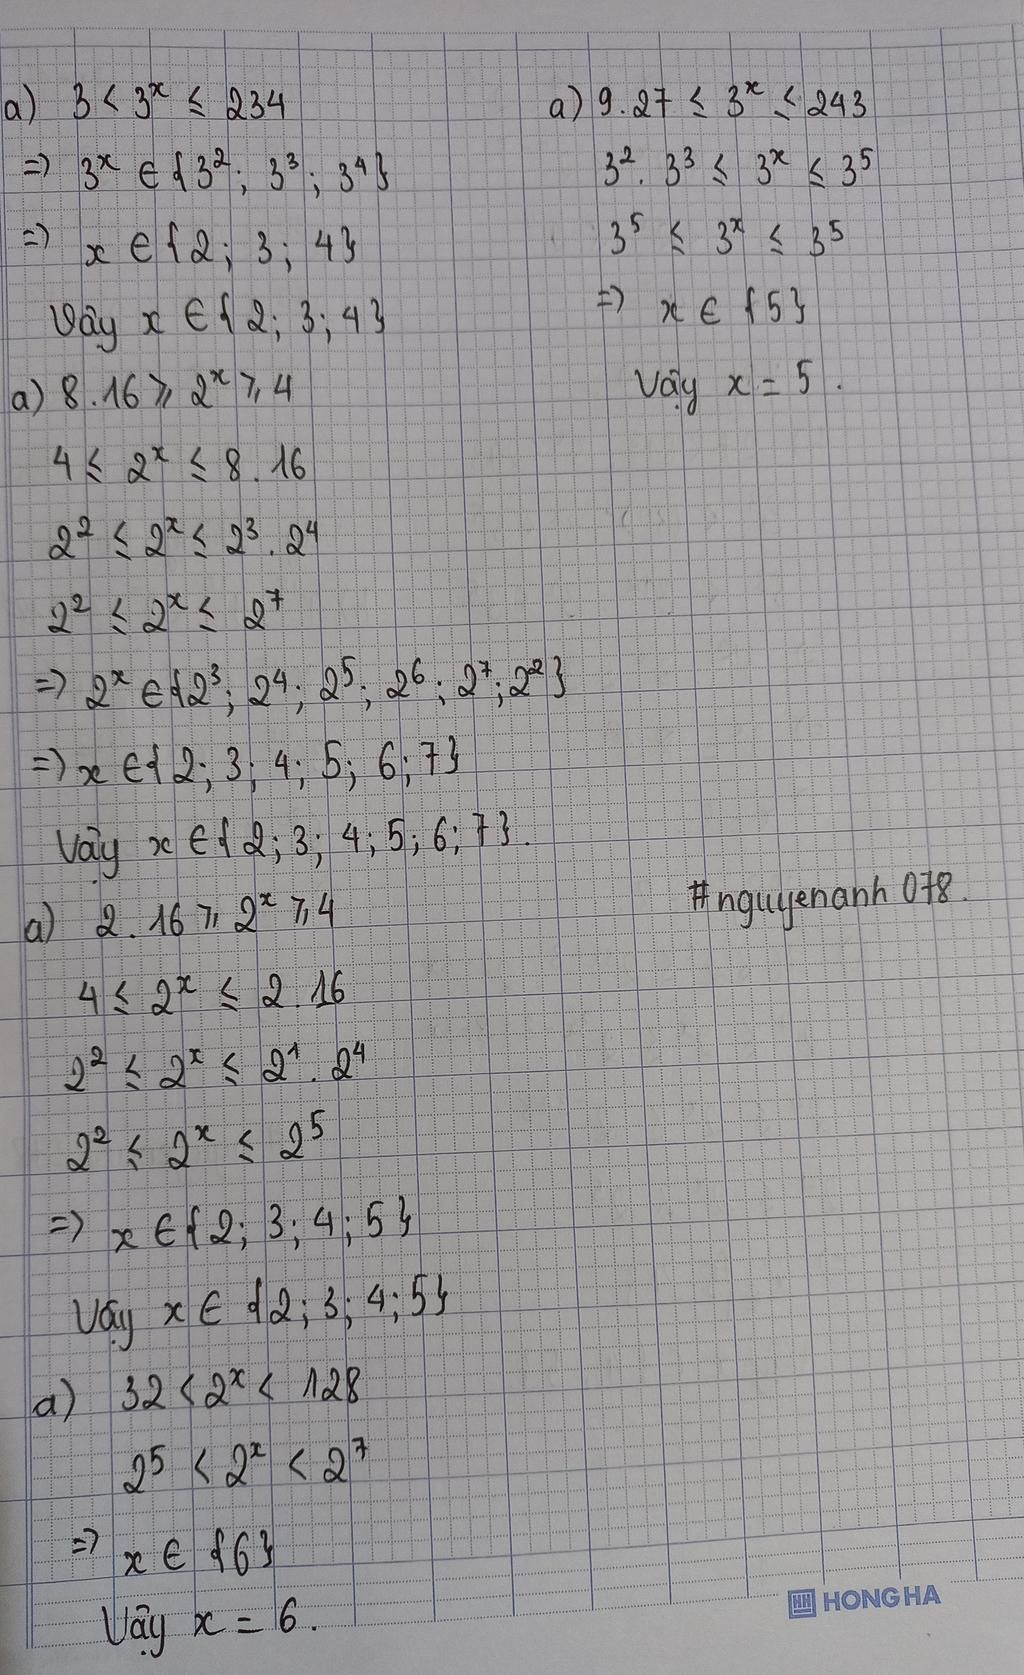 a) 3 < 3ˣ ≤ 234
=> 3ˣ ∈ {3²; 3³; 3⁴}
=> x ∈ {2; 3; 4}
Vậy x ∈ {2; 3; 4}
a) 8.16 ⩾ 2ˣ ⩾ 4
4 ≤ 2ˣ ≤ 8.16
2² ≤ 2ˣ ≤ 2³.2⁴
2² ≤ 2ˣ ≤ 2⁷
=> 2ˣ ∈ {2³; 2⁴; 2⁵; 2⁶; 2⁷; 2²}
=> x ∈ {2; 3; 4; 5; 6; 7}
Vậy x ∈ {2; 3; 4; 5; 6; 7}.
a) 2.16 ⩾ 2ˣ ⩾ 4
4 ≤ 2ˣ ≤ 2.16
2² ≤ 2ˣ ≤ 2¹.2⁴
2² ≤ 2ˣ ≤ 2⁵
=> x ∈ {2; 3; 4; 5}
Vậy x ∈ {2; 3; 4; 5}
a) 32 < 2ˣ < 128
2⁵ < 2ˣ < 2⁷
=> x ∈ {6}
Vậy x = 6.
a) 9.27 ≤ 3ˣ ≤ 243
3².3³ ≤ 3ˣ ≤ 3⁵
3⁵ ≤ 3ˣ ≤ 3⁵
=> x ∈ {5}
Vậy x = 5.
#nguyenanh078.
HH HONG HA